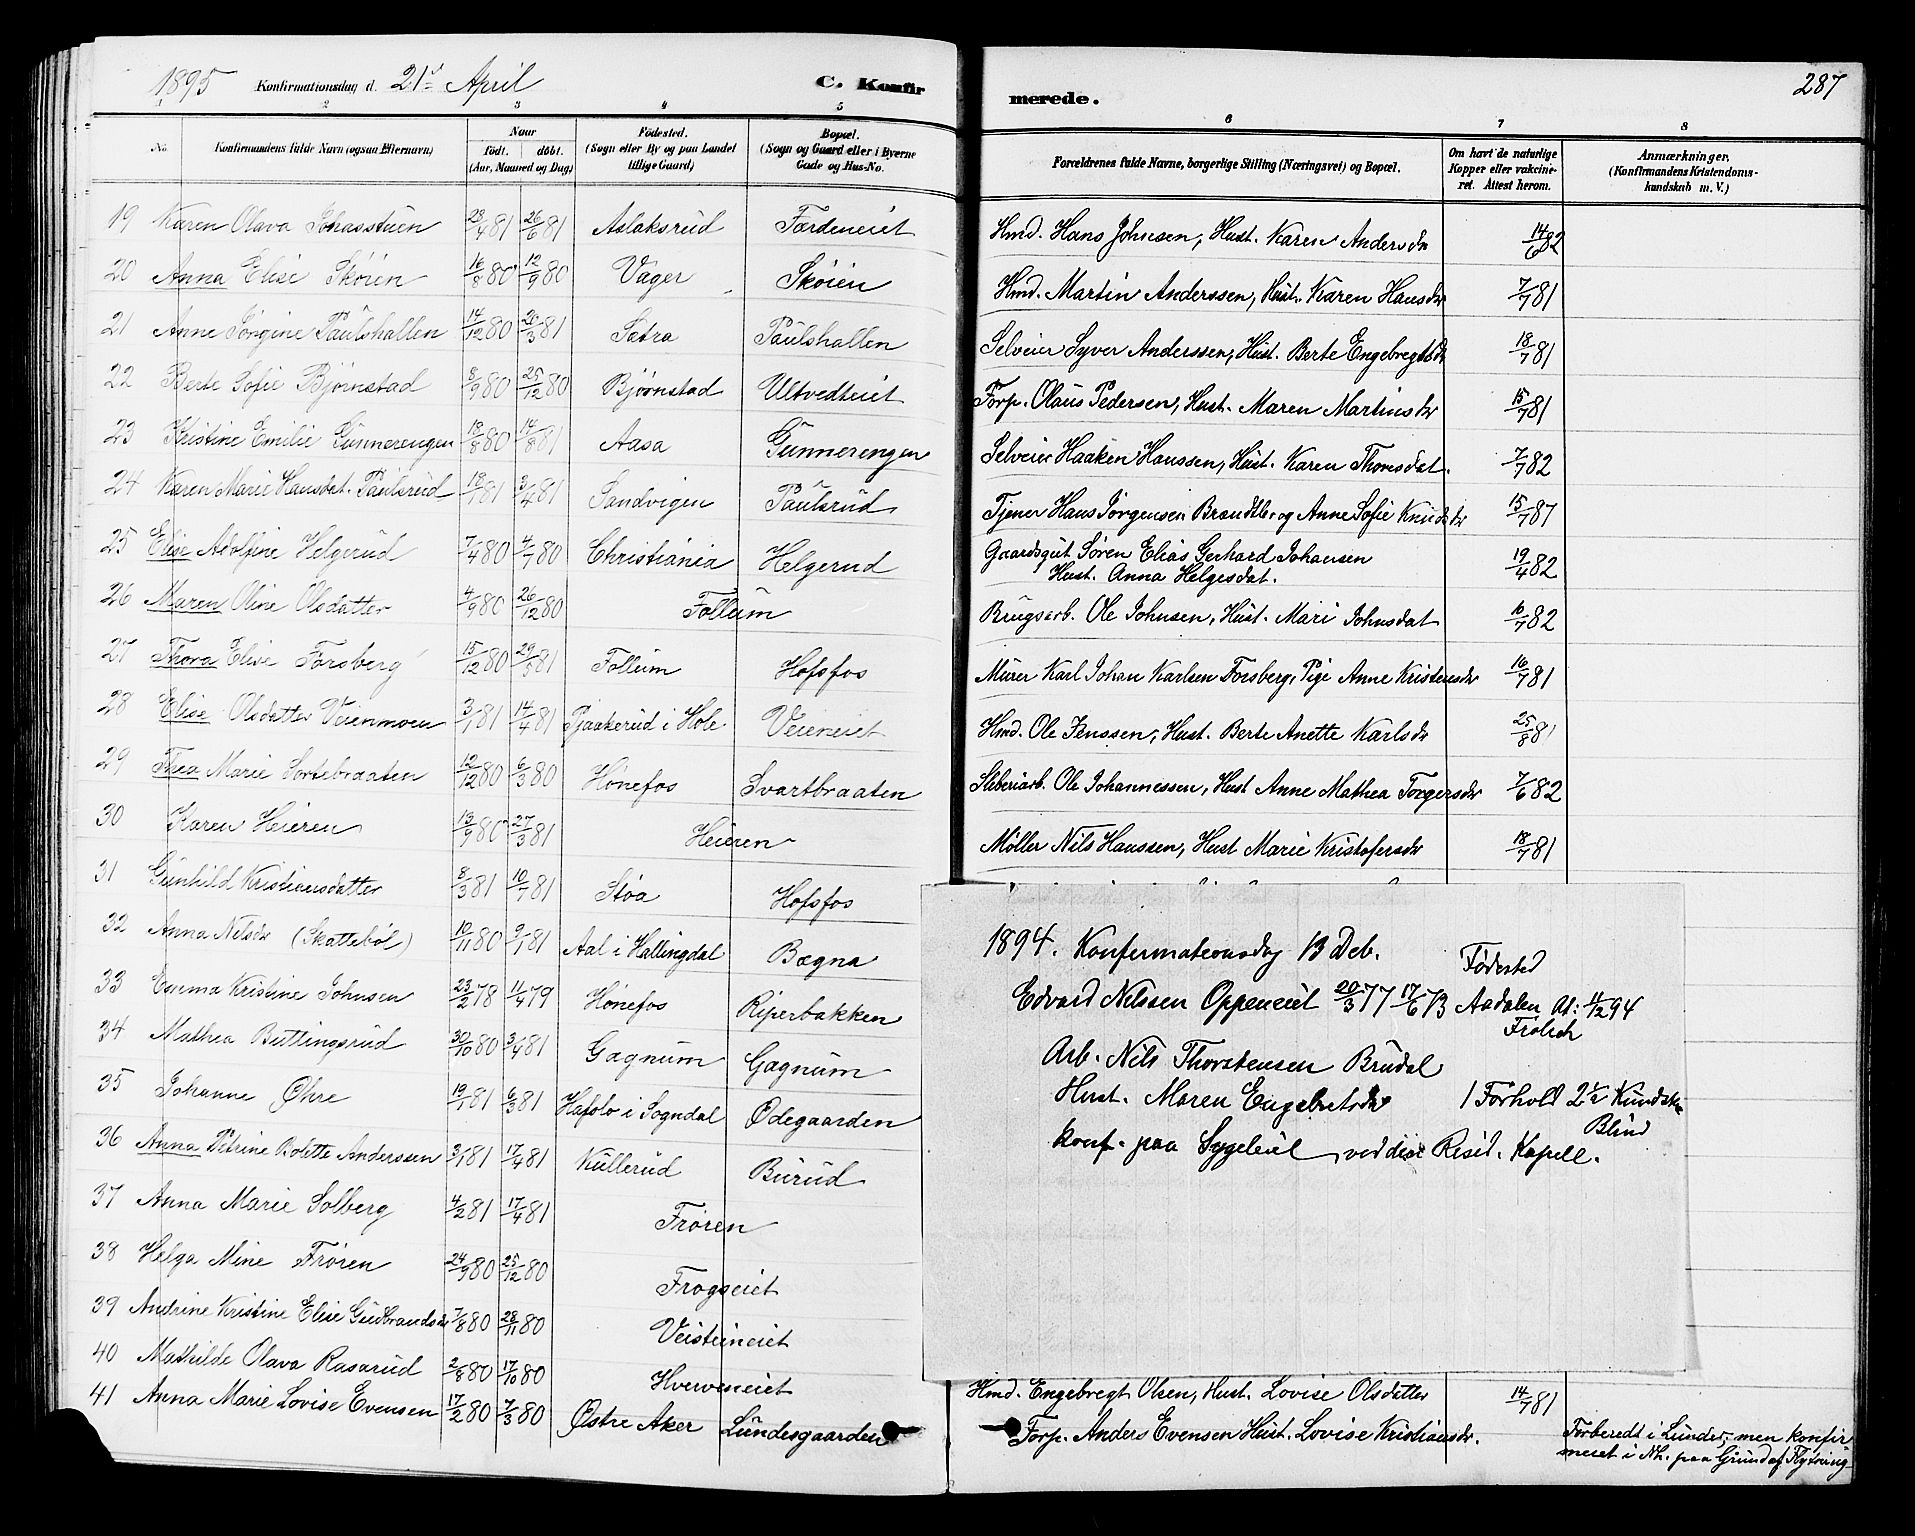 1895 Konfirmationsdag d. 21de April C. Konfir
merede. 287
2 3 4 5 6 7 8
No. Konfirmandens fulde Navn (ogsaa Efternavn)
Naar født. døbt. (Aar, Maaned og Dag)
Fødested. (Sogn eller By og paa Landet tillige Gaard)
Bopæl. (Sogn og Gaard eller i Byerne Gade og Hus-No.
Forældrenes fulde Navne, borgerlige Stilling (Næringsvei) og Bopæl.
Om havt de naturlige Kopper eller vakcineret. Attest herom.
Anmærkninger. (Konfirmandens Kristendomskundskab m. V.)
19 Karen Olava Johasstuen 23/4 81 26/6 81 Aslaksrud Færdeneiet Hmd. Hans Johnsen, Hust. Karen Andersdr 14/6 82
20 Anna Elise Skøien 16/8 80 12/9 80 Vager Skøien Hmd. Martin Anderssen, Hust. Karen Hansdr 7/7 81
21 Anne Jørgine Paulshallen 14/12 80 20/3 81 Sætra Paulshallen Selveier Syver Anderssen, Hust. Berte Engebregtsdr 18/7 81
22 Berte Sofie Bjørnstad 8/9 80 25/12 80 Bjørnstad Ultvedteiet Forp. Olaus Pedersen, Hust. Maren Martinsdr 15/7 81
23 Kristine Emilie Gunnerengen 18/8 80 14/8 81 Aasa Gunnerengen Selveier Haaken Hanssen, Hust. Karen Thoresdat. 7/7 82
24 Karen Marie Hansdat. Paulsrud 18/1 81 3/4 81 Sandvigen Paulsrud Tjener Hans Jørgensen Brandtbr og Anne Sofie Knudsdr 15/7 87
25 Elise Adolfine Helgerud 7/4 80 4/7 80 Christiania Helgerud Gaardsgut Søren Elias Gerhard Johansen
Hust. Anna Helgesdat. 19/4 82
26 Maren Oline Olsdatter 4/9 80 26/12 80 Follum Brugsarb. Ole Johnsen, Hust. Mari Johnsdat 16/7 82
27 Thora Elise Forsberg 15/12 80 29/5 81 Follum Hofsfos Murer Karl Johan Karlsen Forsberg, Pige Anne Kristensdr 16/7 81
28 Elise Olsdatter Veienmoen 3/1 81 14/4 81 Pjaakerud i Hole Veieneiet Hmd. Ole Jenssen, Hust. Berte Anette Karlsdr 25/8 81
29 Thea Marie Sortebraaten 12/12 80 6/3 80 Hønefos Svartbraaten Sliberiarb. Ole Johannessen, Hust Anne Mathea Torgersdr 7/6 82
30 Karen Heieren 13/9 80 27/3 81 Heieren Møller Nils Hanssen, Hust Marie Kristofersdr 18/7 81
31 Gunhild Kristiansdatter 8/3 81 10/7 81 Støa Hofsfos
32 Anna Nilsdr (Skattebøl) 10/11 80 9/1 81 Aal i Hallingdal Bægna
33 Emma Kristine Johnsen 23/2 78 11/4 79 Hønefos Riperbakken
34 Mathea Buttingsrud 30/10 80 3/4 81 Gagnum Gagnum
35 Johanne Øhre 19/1 81 6/3 81 Hafslo i Sogndal Ødegaarden
36 Anna Petrine Bolette Anderssen 3/1 81 17/4 81 Kullerud Burud
37 Anna Marie Solberg 4/2 81 17/4 81 Frøren
38 Helga Mine Frøren 24/9 80 25/12 80 Frogseiet
39 Andrine Kristine Elise Gudbrandsdr 7/8 80 28/11 80 Veisteineiet
40 Mathilde Olava Rasarud 2/8 80 17/10 80 Hverveneiet Hmd. Engebregt Olsen, Hust. Lovise Olsdatter 14/7 81
41 Anna Marie Lovise Evensen 17/2 80 7/3 80 Østre Aker Lundesgaarden Forp. Anders Evensen Hust. Lovise Kristiansdr.
Forberedt i Lunder, men konfir
meret i Nh. paa Grund af Flytning
1894. Konfirmationsdag 13 Deb.
Fødested
Edvard Nilssen Oppeneiet 20/3 77 17/6 73 Aadalen At: 11/12 94
Frølich
Arb. Nils Thorstensen Brudal
Hust. Maren Engebretsdr 1 Forhold 2½ Kundsk
Blind
konf. paa Sygeleiet ved Resid. Kapell.